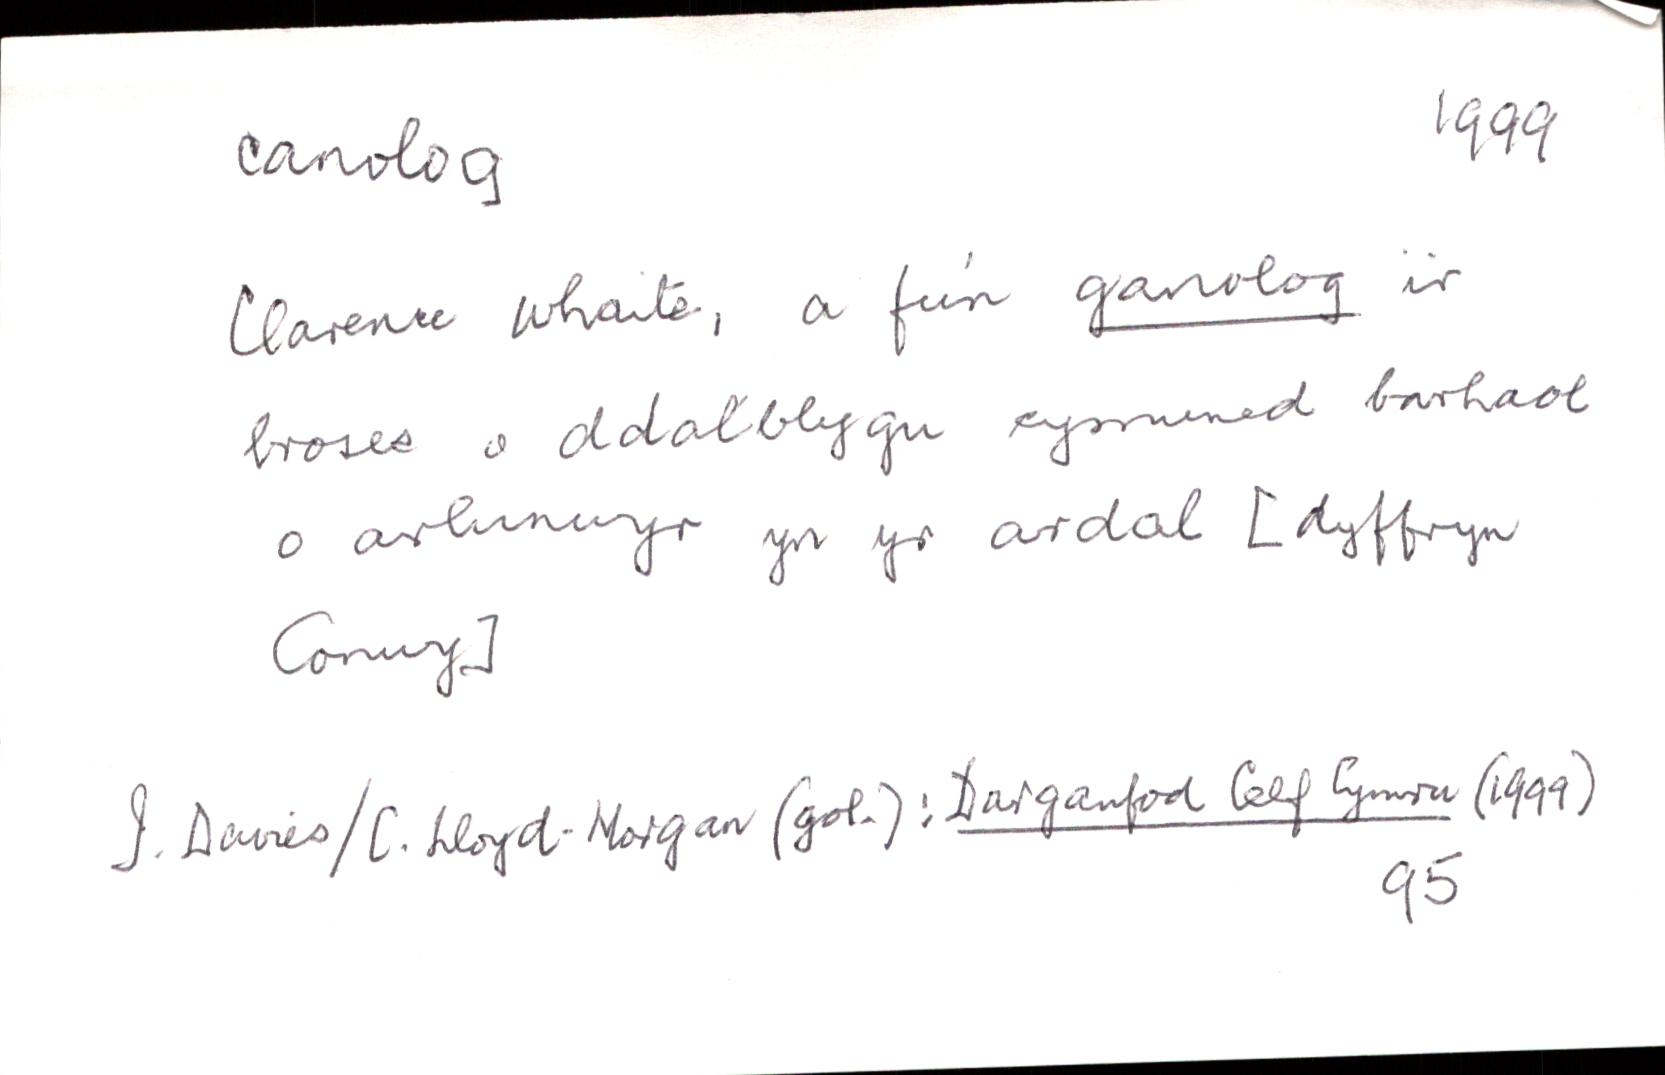 canolog 1999
Clarence Whaite, a fu'n ganolog i'r
broses o ddatblygu cymuned barhaol
o arlunwyr yn yr ardal [dyffryn
Conwy]
I. Davies/C. Lloyd-Morgan (gol.): Darganfod Celf Cymru (1999)
95